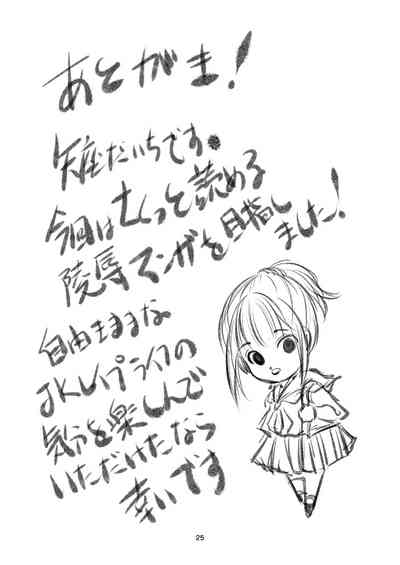 あとがき！
だいちです。
今回はさくっと読める
陵辱マンガを目指し
ました！
自由きままな
JKレイプライフの
気分を楽しんで
いただけたなら
幸いです
25